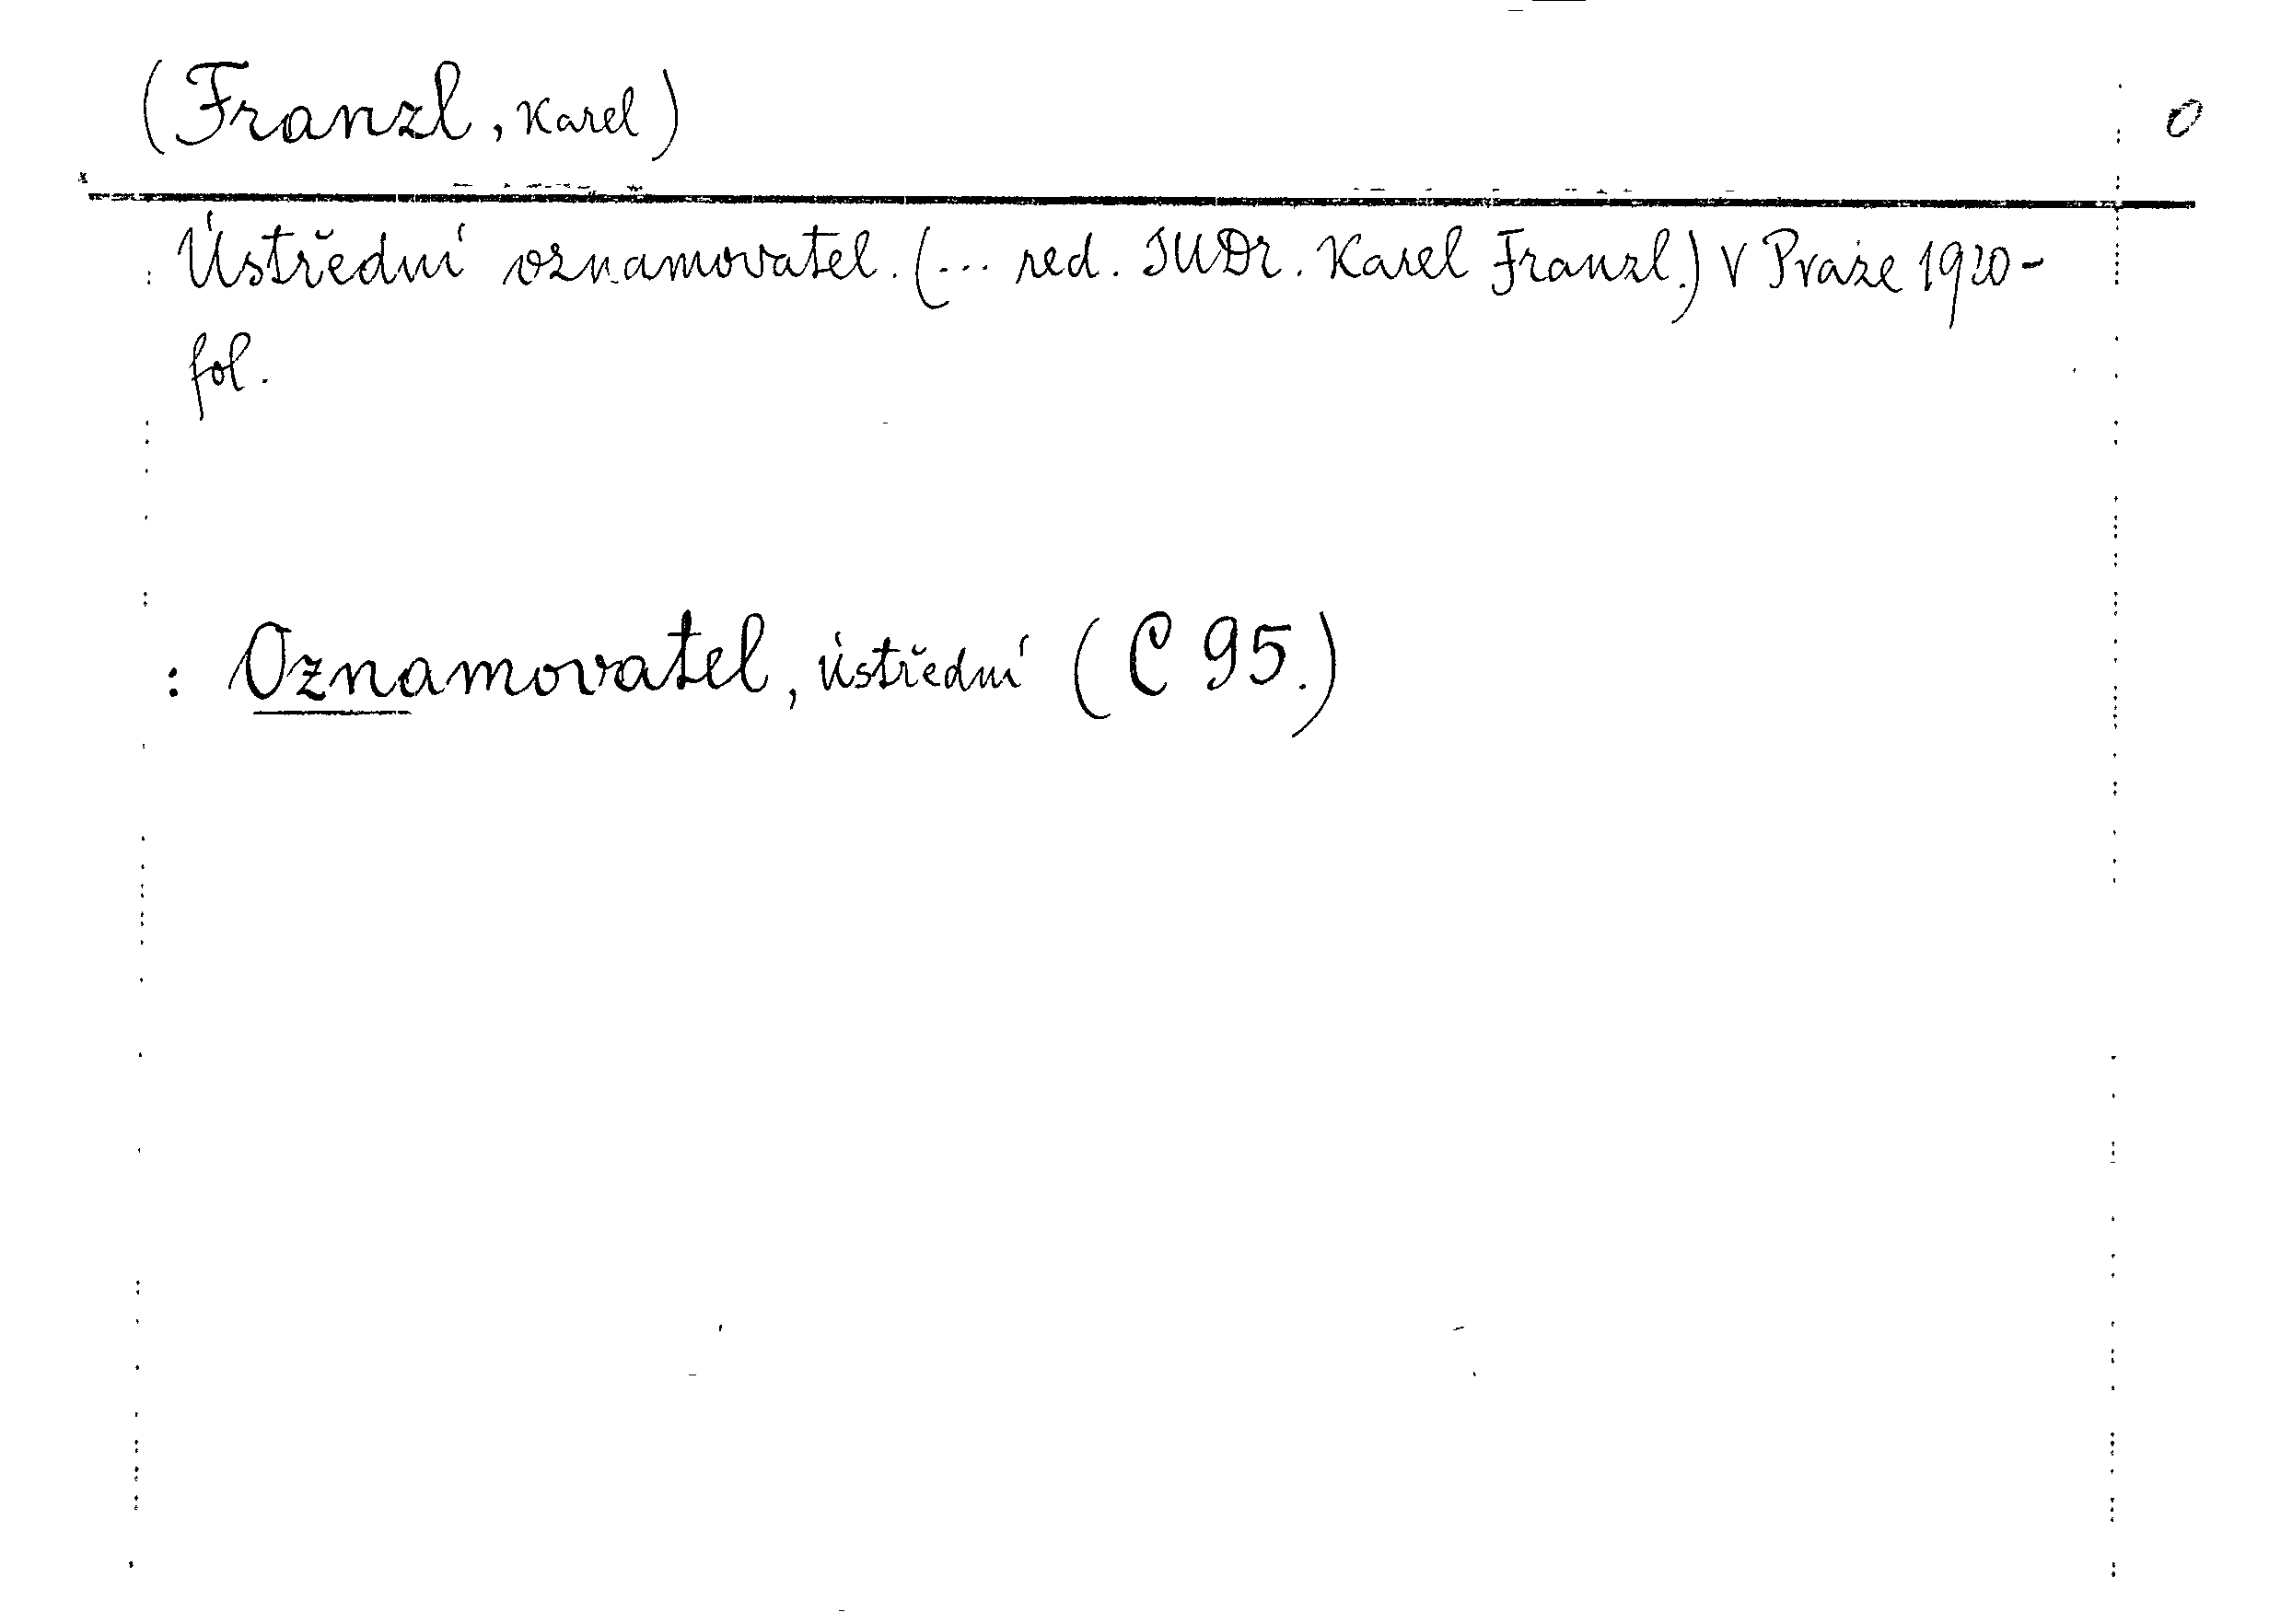 (Franzl, Karel)
O
Ústřední oznamovatel. (... red. JUDr. Karel Franzl.) V Praze 1920-
fol.
: Oznamovatel, ústřední (C 95.)